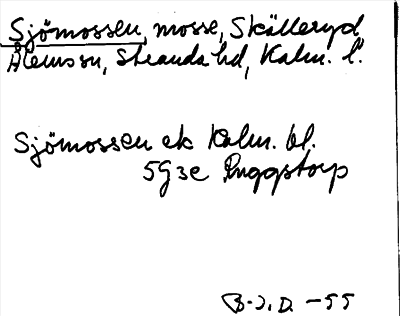 Sjömossen, mosse, Skälleryd
Ålems sn, Stranda hd, Kalm. l.
Sjömossen ek Kalm. bl.
5G3e Ruggstorp
B.J.D. -55